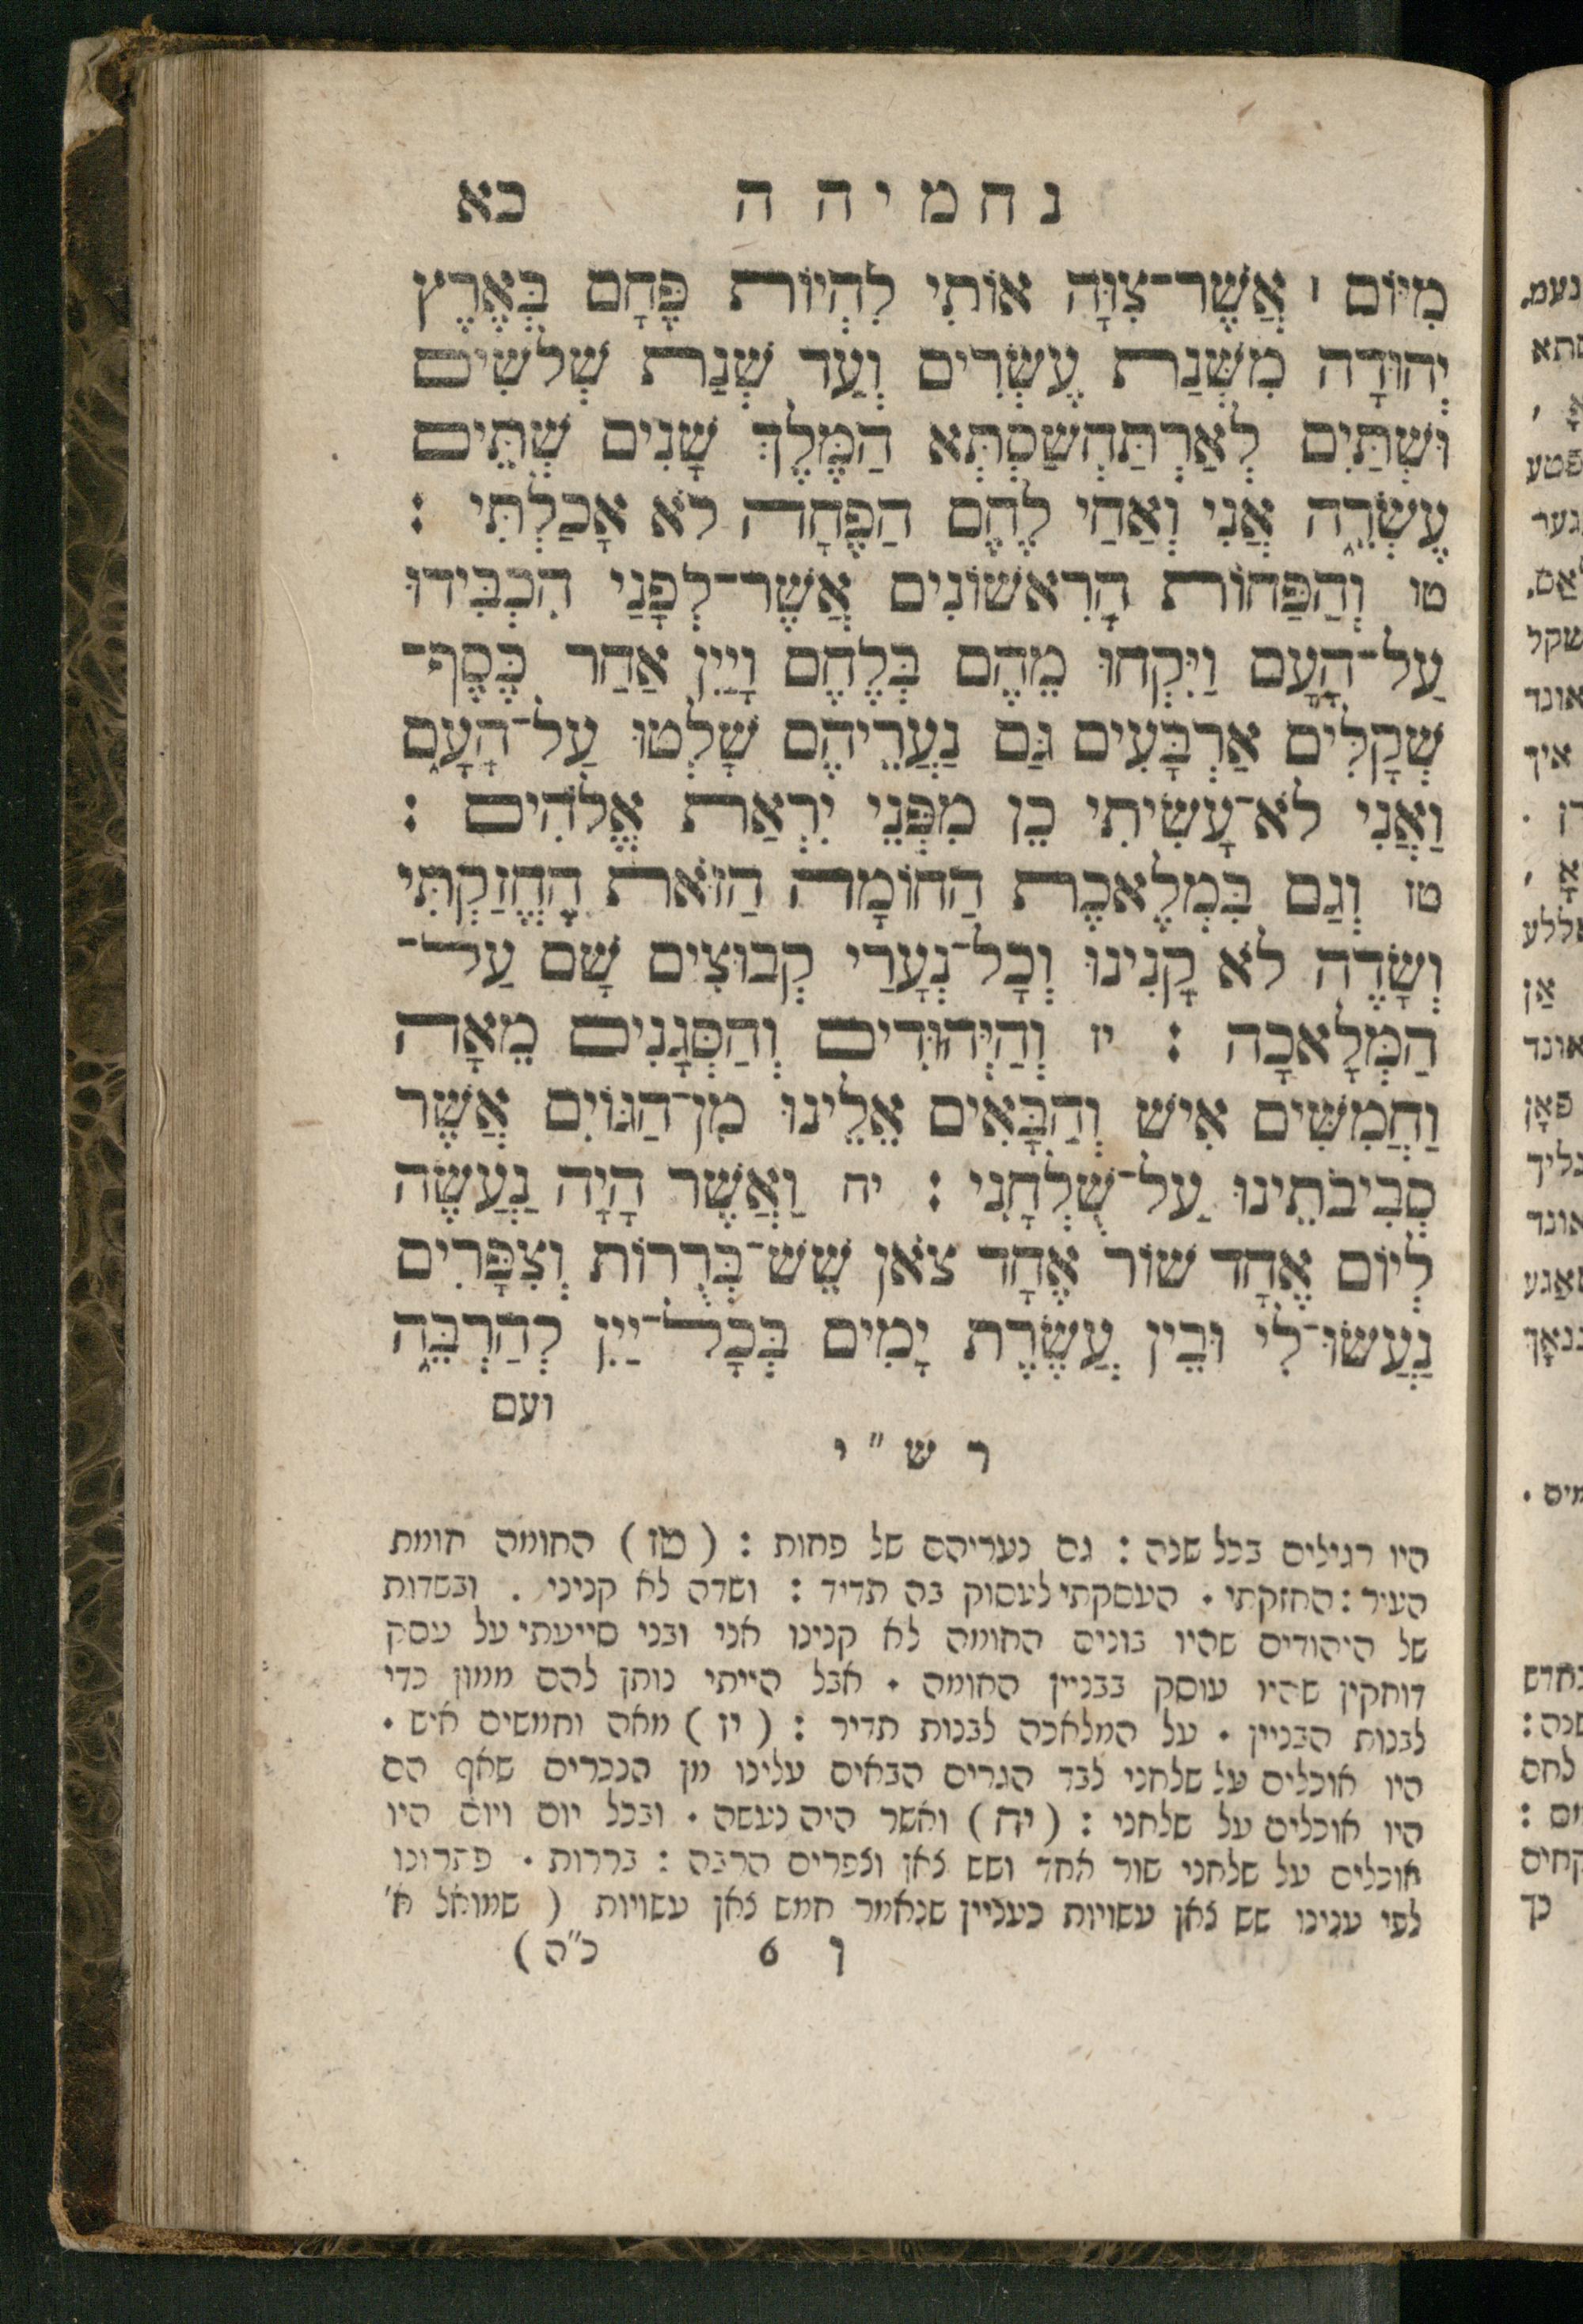 נחמיה ה כא
מִיּוֹם ׀ אֲשֶׁר־צִוָּה אוֹתִי לִהְיוֹת פֶּחָם בְּאֶרֶץ
יְהוּדָה מִשְּׁנַת עֶשְׂרִים וְעַד שְׁנַת שְׁלֹשִׁים
וּשְׁתַּיִם לְאַרְתַּחְשַׁסְתְּא הַמֶּלֶךְ שָׁנִים שְׁתֵּים
עֶשְׂרֵה אֲנִי וְאַחַי לֶחֶם הַפֶּחָה לֹא אָכַלְתִּי :
טו וְהַפַּחוֹת הָרִאשׁוֹנִים אֲשֶׁר־לְפָנַי הִכְבִּידוּ
עַל־הָעָם וַיִּקְחוּ מֵהֶם בְּלֶחֶם וָיַיִן אַחַר כֶּסֶף־
שְׁקָלִים אַרְבָּעִים גַּם נַעֲרֵיהֶם שָׁלְטוּ עַל־הָעָם
וַאֲנִי לֹא־עָשִׂיתִי כֵן מִפְּנֵי יִרְאַת אֱלֹהִים :
טז וְגַם בִּמְלֶאכֶת הַחוֹמָה הַזֹּאת הֶחֱזַקְתִּי
וְשָׂדֶה לֹא קָנִינוּ וְכָל־נְעָרַי קְבוּצִים שָׁם עַל־
הַמְּלָאכָה : יז וְהַיְּהוּדִים וְהַסְּגָנִים מֵאָה
וַחֲמִשִּׁים אִישׁ וְהַבָּאִים אֵלֵינוּ מִן־הַגּוֹיִם אֲשֶׁר
סְבִיבֹתֵינוּ עַל־שֻׁלְחָנִי : יח וַאֲשֶׁר הָיָה נַעֲשֶׂה
לְיוֹם אֶחָד שׁוֹר אֶחָד צֹאן שֵׁשׁ־בְּרֻרוֹת וְצִפֳּרִים
נַעֲשׂוּ־לִי וּבֵין עֲשֶׂרֶת יָמִים בְּכָל־יַיִן לְהַרְבֵּה
ועם
רש״י
היו רגילים בכל שנה : גם נעריהם של פחות : (טז) החומה חומת
העיר : החזקתי . העסקתי לעסוק בה תדיד : ושדה לא קניני . ובשדות
של היהודים שהיו בונים החומה לא קנינו אני ובני סייעתי על עסק
דוחקין שהיו עוסק בבניין החומה . אבל הייתי נותן להם ממון כדי
לבנות הבניין . על המלאכה לבנות תדיר : (יז) מאה וחמשים איש .
היו אוכלים על שלחני לבד הגרים הבאים עלינו מן הנכרים שאף הם
היו אוכלים על שלחני : (יח) ואשר היה נעשה . ובכל יום ויום היו
אוכלים על שלחני שור אחד ושש צאן וצפרים הרבה : בררות . פתרונו
לפי ענינו שש צאן עשויות כעניין שנאמר חמש צאן עשויות ( שמואל א׳
ן 6 כ״ה)